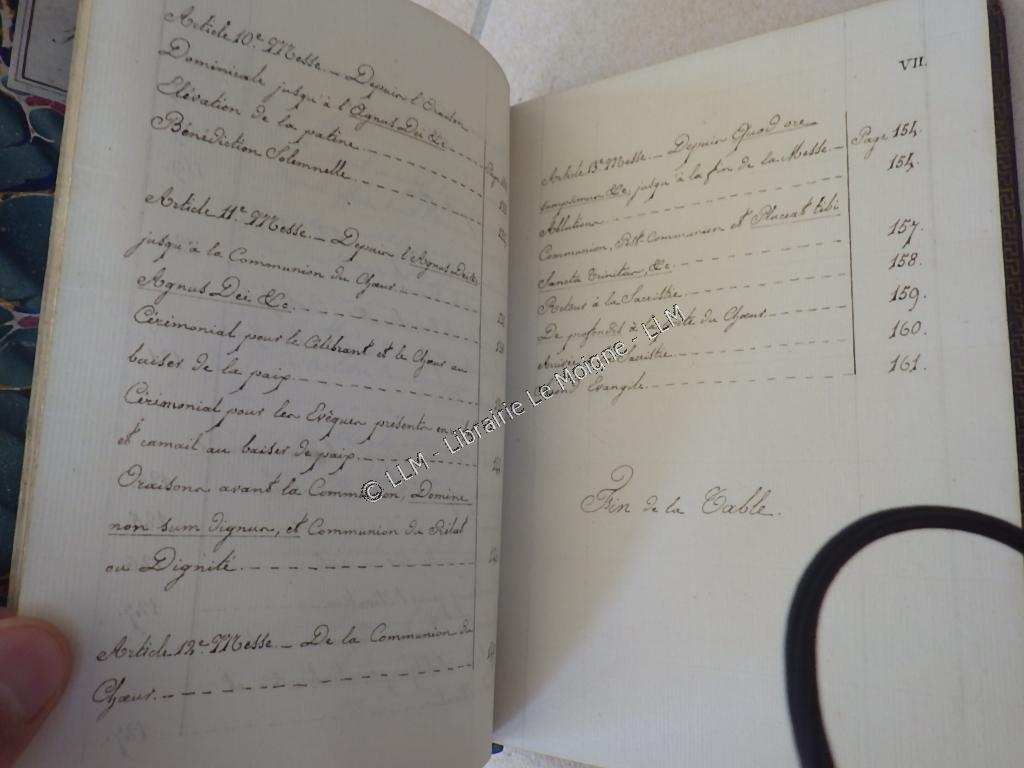 Article 10.e Messe. — Depuis l'Oraison
Dominicale jusqu'à l'Agnus Dei &c.
Elévation de la patène
Bénédiction Solennelle
Article 11.e Messe. — Depuis l'Agnus Dei &c
jusqu'à la Communion du Chœur
Agnus Dei &c.
Cérémonial pour le Célébrant et le Chœur au
baiser de la paix
Cérémonial pour les Evêques présents en
et camail au baiser de paix
Oraisons avant la Communion, Domine
non sum dignus, et Communion du Prélat
ou Dignité
Article 12.e Messe. — De la Communion du
Chœur.
VII.
Article 13.e Messe. — Depuis Quod ore
sumpsimus &c, jusqu'à la fin de la Messe — Page 154.
Ablution 154.
Communion, Post Communion et Placeat tibi
Sancta Trinitas, &c. 157.
Retour à la Sacristie 158.
De profundis à du Chœur 159.
Sacristie 160.
Evangile 161.
Fin de la Table.
© LLM - Librairie Le Moigne - LLM